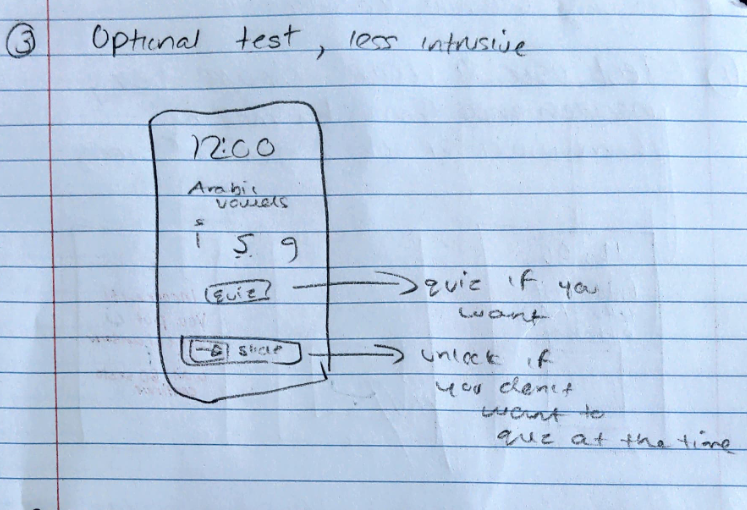 ③ Optional test, less intrusive
12:00
Arabic
vowels
أ ي و
quiz?
→ slide
quiz if you
want
unlock if
you dont
want to
quz at the time